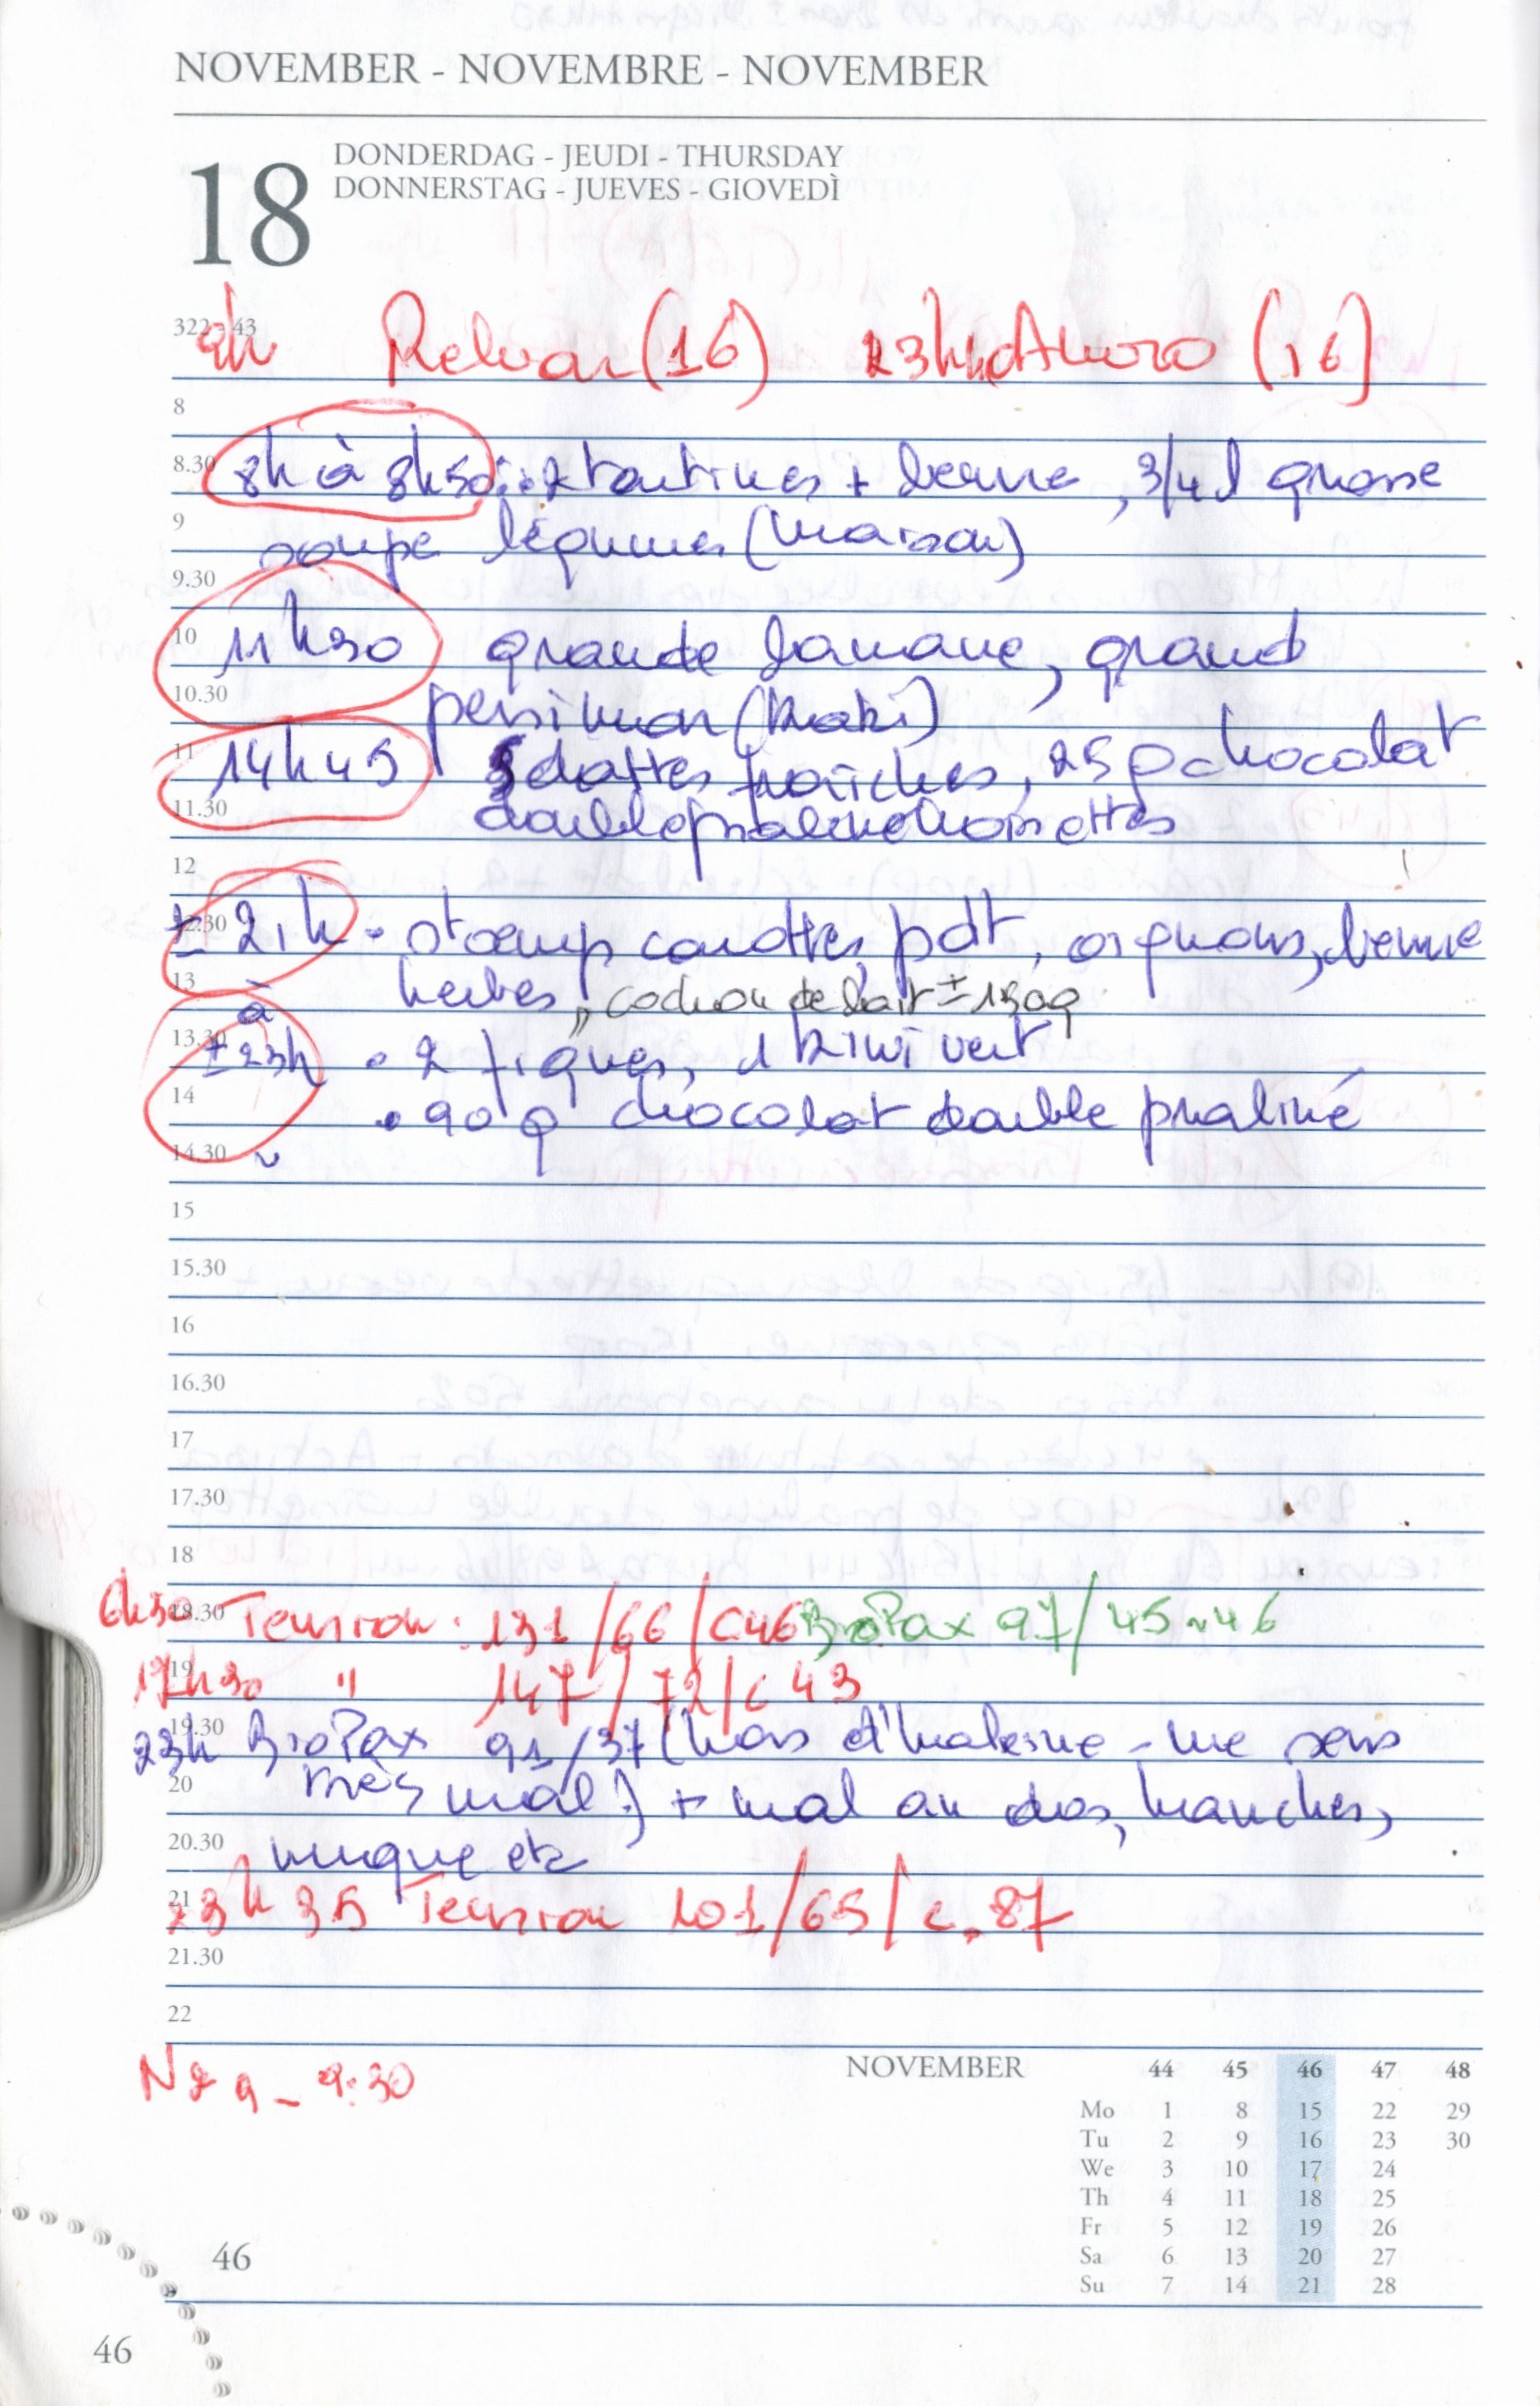 NOVEMBER - NOVEMBRE - NOVEMBER
18
DONDERDAG - JEUDI - THURSDAY
DONNERSTAG - JUEVES - GIOVEDÌ
322 - 43
9h Relvar (16) 23h40 Atworo (16)
8
8.30 8h à 8h50 : 2 tartines + beurre, 3/4 l grosse
9 soupe légumes (maison)
9.30
10 11h30 grande banane, grand
10.30 persimon (kaki)
11 14h45 5 dattes fraîches, 25 g chocolat
11.30 double praliné noisettes
12
12.30 ± 21h • stoemp carottes pdt, oignons, beurre
13 à herbes, cochon de lait ± 150g
13.30 ± 23h • 2 figues, 1 kiwi vert
14 • 90 g chocolat double praliné
14.30
15
15.30
16
16.30
17
17.30
18
18.30 6h30 Tension : 131/66/C46 BroPax 97/45~46
19 17h30 " 147/72/c43
19.30 23h BroPax 91/37 (hors d'haleine - me sens
20 très mal !) + mal au dos, hanches,
20.30 nuque etc
21 23h35 Tension 101/65/c.87
21.30
22
9:30
NOVEMBER 44 45 46 47 48
Mo 1 8 15 22 29
Tu 2 9 16 23 30
We 3 10 17 24
Th 4 11 18 25
Fr 5 12 19 26
Sa 6 13 20 27
Su 7 14 21 28
46
46